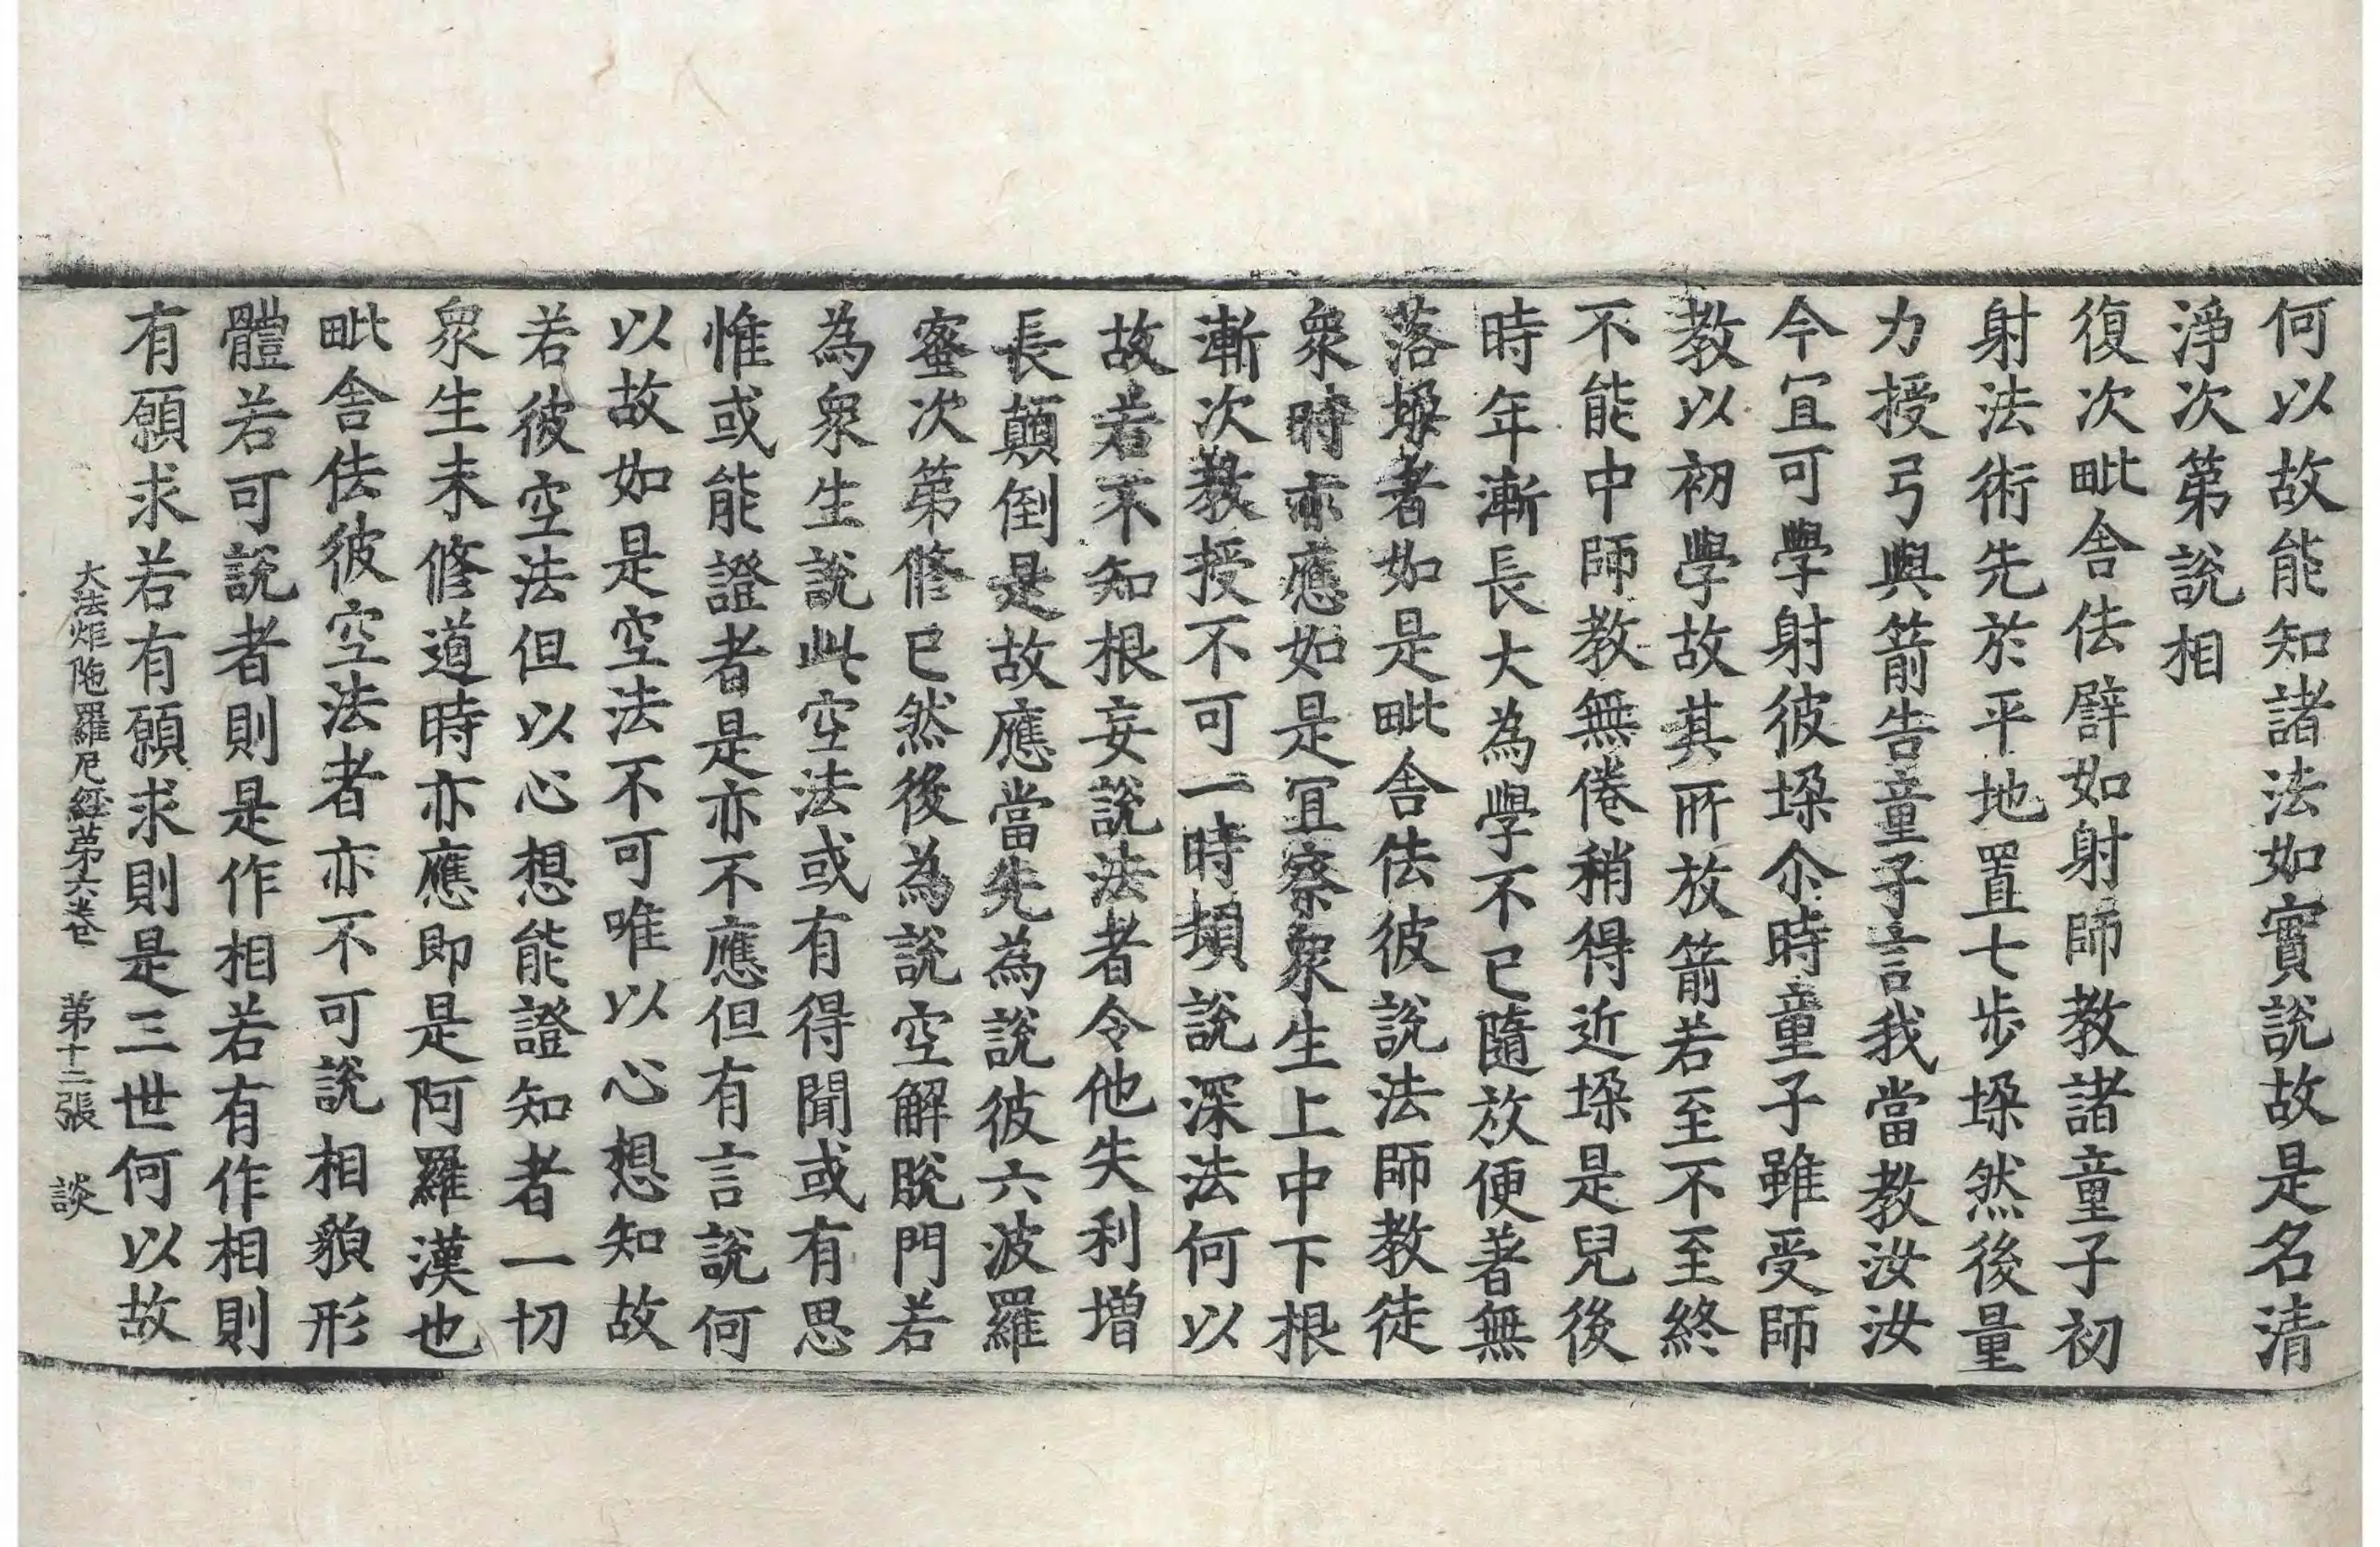 何以故能知諸法如實說故是名清
淨次第說相
復次毗舍佉譬如射師教諸童子初
射法術先於平地置七步垛然後量
力授弓與箭告童子言我當教汝汝
今宜可學射彼垛尒時童子雖受師
教以初學故其所放箭若至不至終
不能中師教無倦稍得近垛是兒後
時年漸長大為學不已隨放便著無
落垛者如是毗舍佉彼說法師教徒
衆時亦應如是宜察衆生上中下根
漸次教授不可一時頓說深法何以
故若不知根妄說法者令他失利增
長顛倒是故應當先為說彼六波羅
蜜次第修已然後為說空解脫門若
為衆生說此空法或有得聞或有思
惟或能證者是亦不應但有言說何
以故如是空法不可唯以心想知故
若彼空法但以心想能證知者一切
衆生未修道時亦應即是阿羅漢也
毗舍佉彼空法者亦不可說相貌形
體若可說者則是作相若有作相則
有願求若有願求則是三世何以故
大法炬陁羅尼經第六卷 第十二張 談